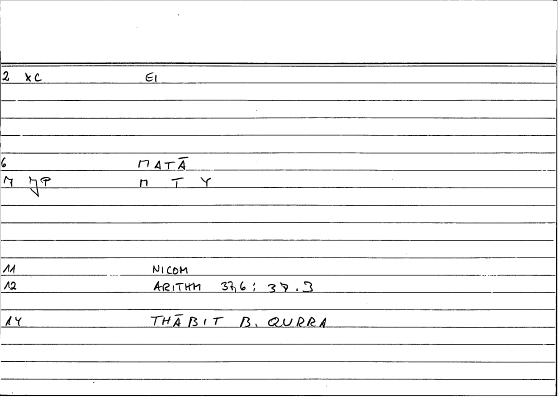 2 XC EI
6 MATĀ
7 M T Y
11 NICOM
12 ARITHM 37,6: 37.3
14 THĀBIT B. QURRA